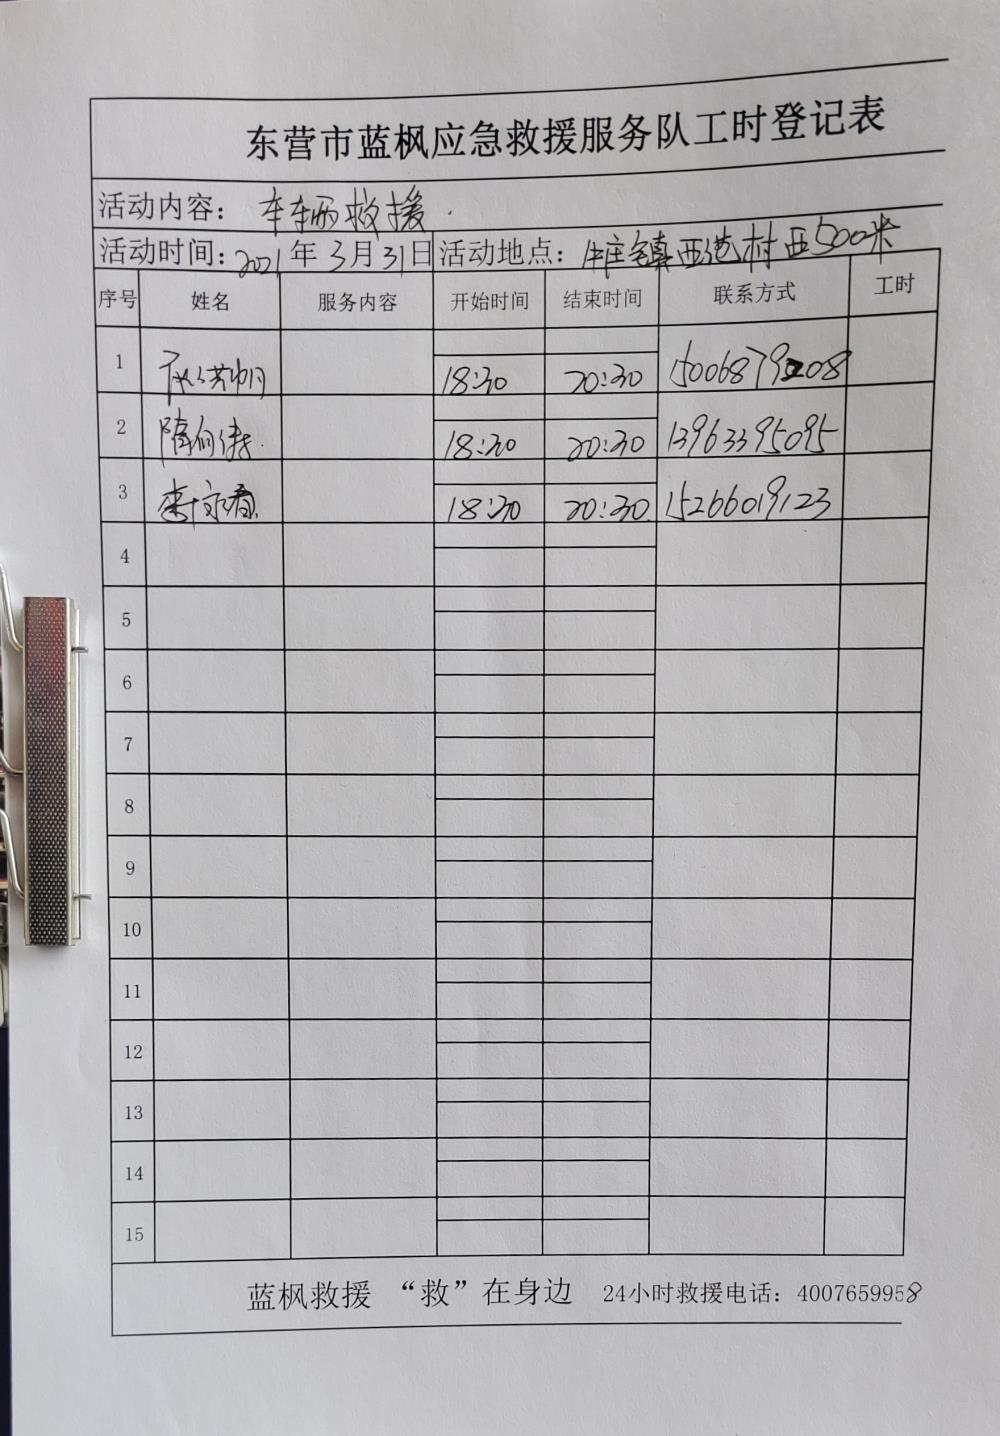 东营市蓝枫应急救援服务队工时登记表
活动内容: 车辆救援.
活动时间: 2021年3月31日 活动地点: 牛庄镇西范村西500米
序号 姓名 服务内容 开始时间 结束时间 联系方式 工时
1 18:30 20:30 15006879208
2 隋向 18:30 20:30 13963395095
3 李永春 18:30 20:30 15266019123
4
5
6
7
8
9
10
11
12
13
14
15
蓝枫救援 “救”在身边 24小时救援电话: 4007659958